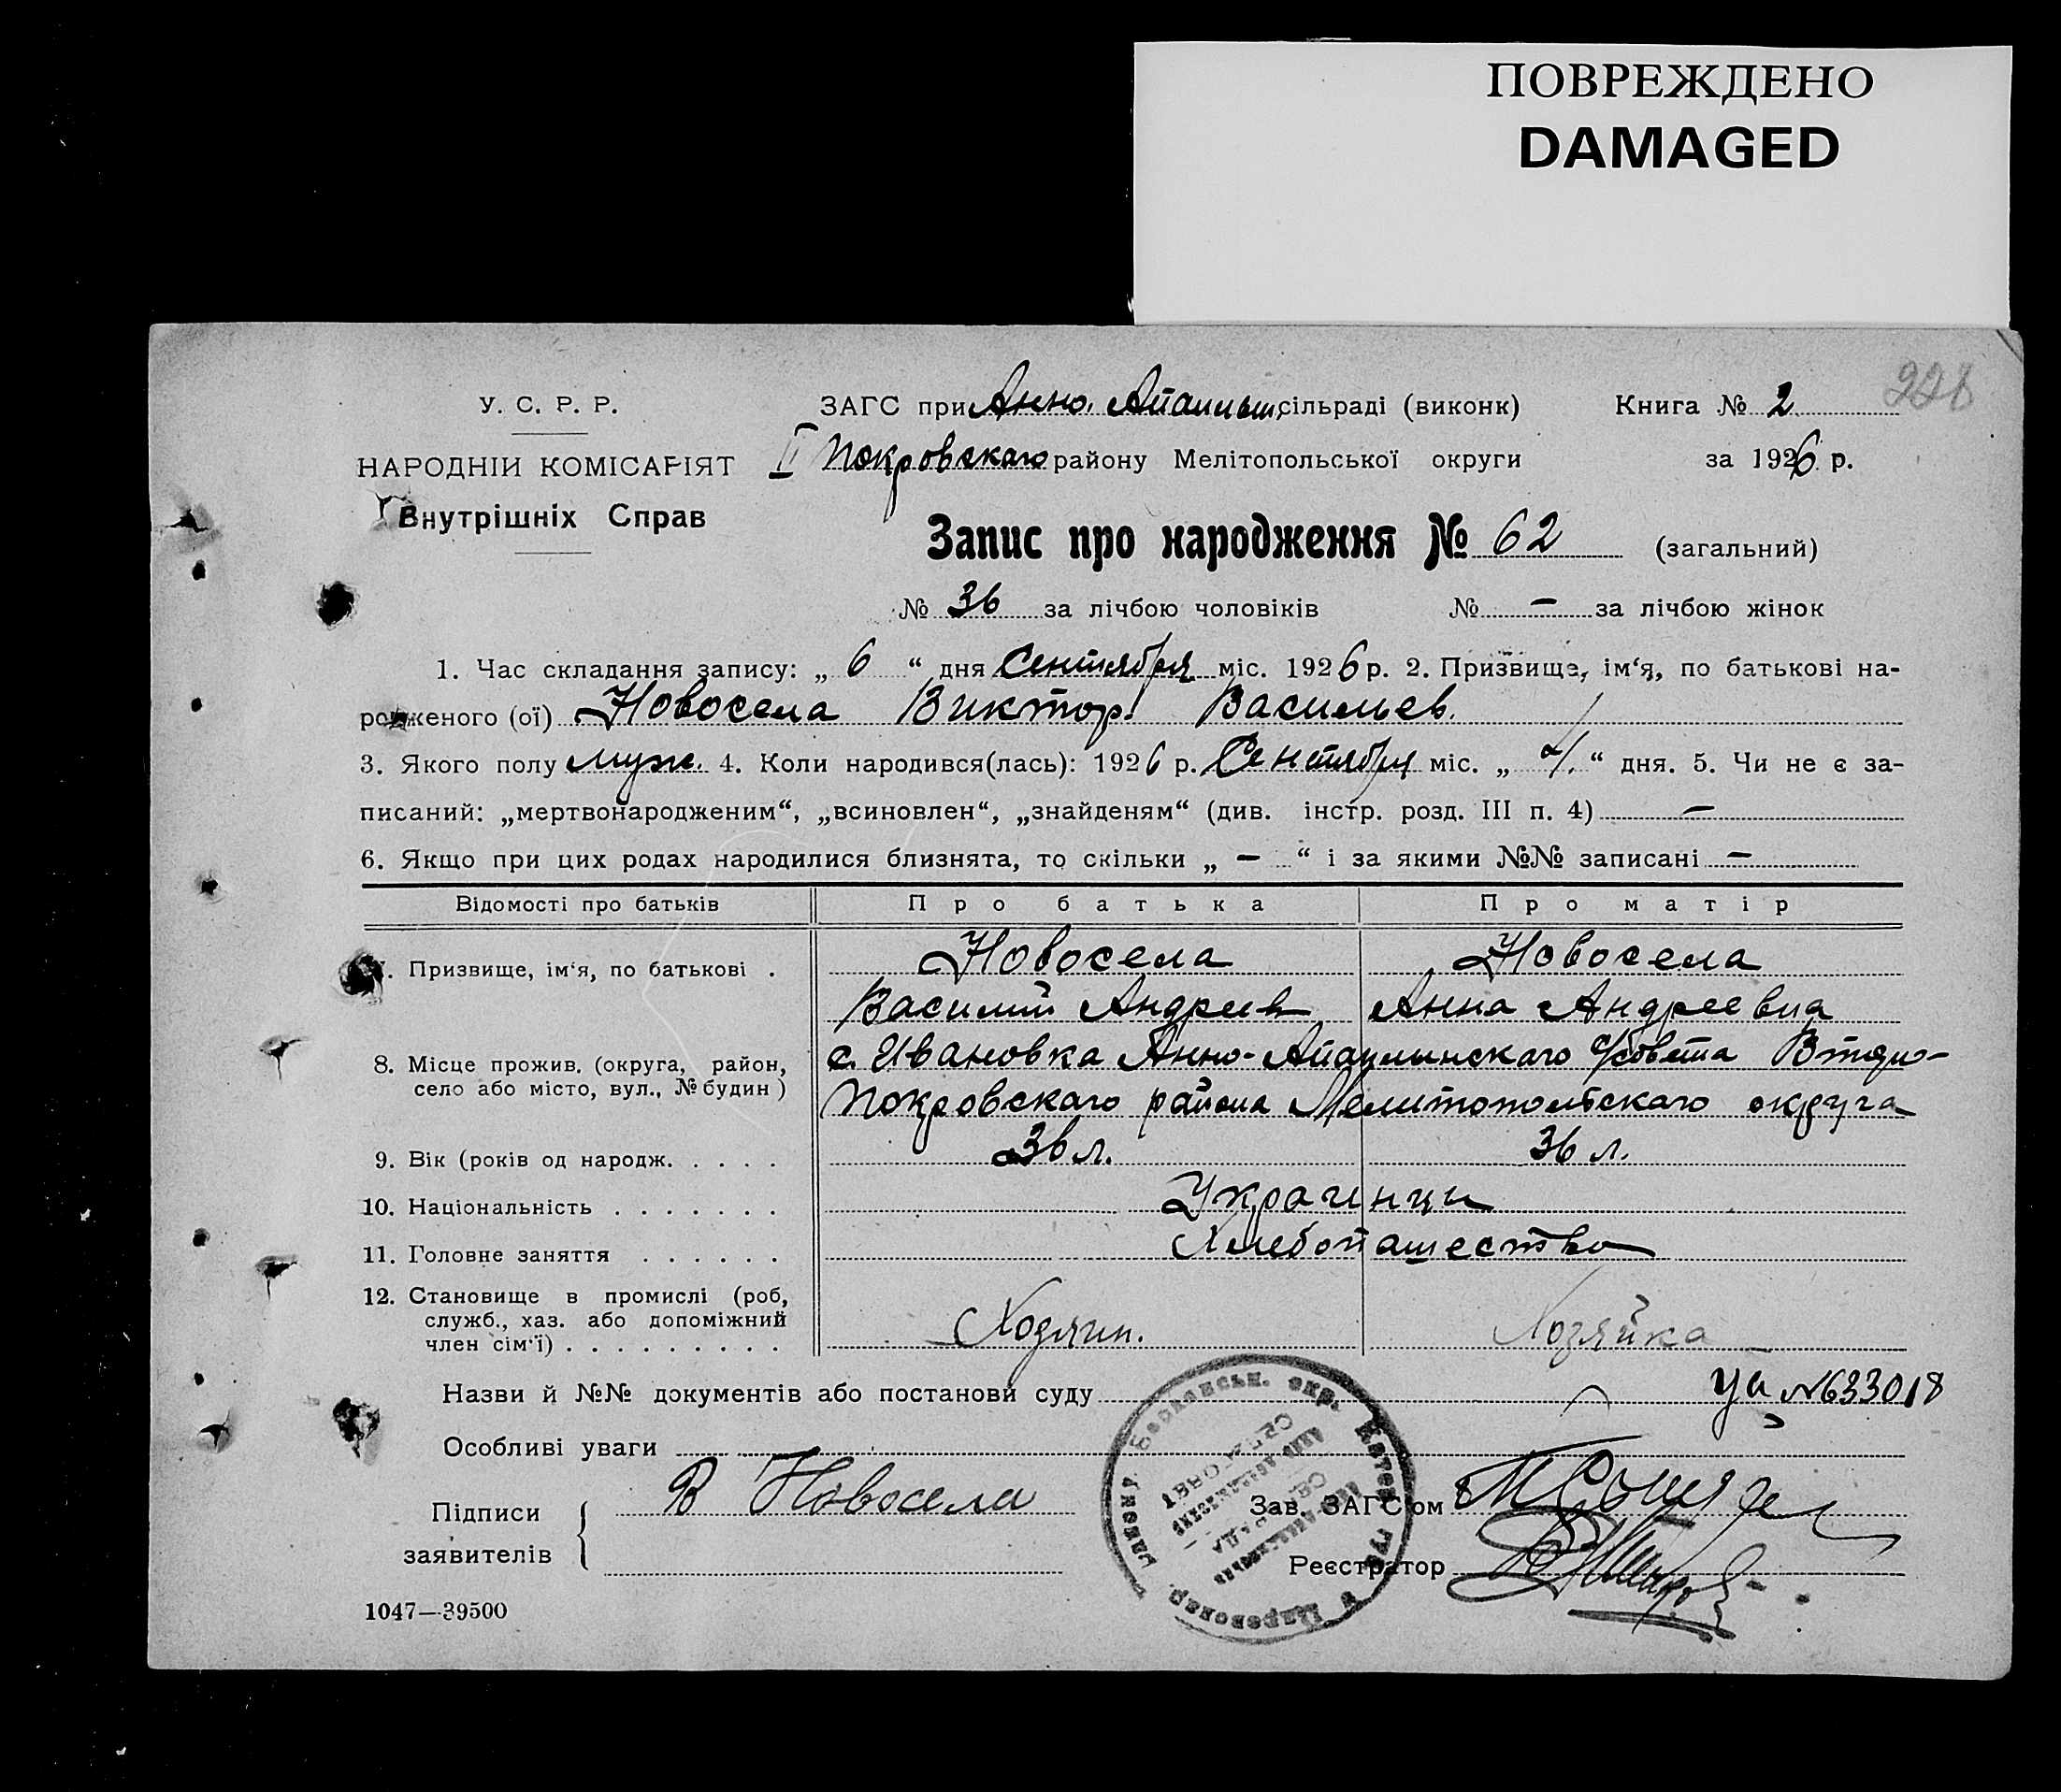 ПОВРЕЖДЕНО
DAMAGED
228
У. С. Р. Р.
НАРОДНІЙ КОМІСАРІЯТ
Внутрішніх Справ
ЗАГС при Анно. Апаилын. сільраді (виконк) Книга № 2
II Покровскаго району Мелітопольської округи за 1926 р.
Запис про народження № 62 (загальний)
№ 36 за лічбою чоловіків № — за лічбою жінок
1. Час складання запису: „ 6 “ дня Сентября міс. 1926 р. 2. Призвище, ім‘я, по батькові на-
родженого (ої) Новосела Виктор Васильев.
3. Якого полу муж. 4. Коли народився(лась): 1926 р. Сентября міс. „ “ дня. 5. Чи не є за-
писаний: „мертвонародженим“, „всиновлен“, „знайденям“ (див. інстр. розд. III п. 4) —
6. Якщо при цих родах народилися близнята, то скільки „ — “ і за якими №№ записані —
Відомості про батьків Про батька Про матір
7. Призвище, ім‘я, по батькові . Новосела Новосела
Василий Андреев Анна Андреевна
8. Місце прожив. (округа, район, село або місто, вул., № будин) с. Ивановка Анно- с/совета Втяро-
Покровскаго района Мелитопольскаго округа
9. Вік (років од народж. . . . . 36 л. 36 л.
10. Національність . . . . . . . Украинцы
11. Головне заняття . . . . . . Хлебопашество
12. Становище в промислі (роб, служб., хаз. або допоміжний член сім‘ї) . . . . . . . . . Хозяин. Хозяйка
Назви й №№ документів або постанови суду №633018
Особливі уваги
Підписи заявителів В Новосела
Зав. ЗАГС‘ом
Реєстратор
1047—39500